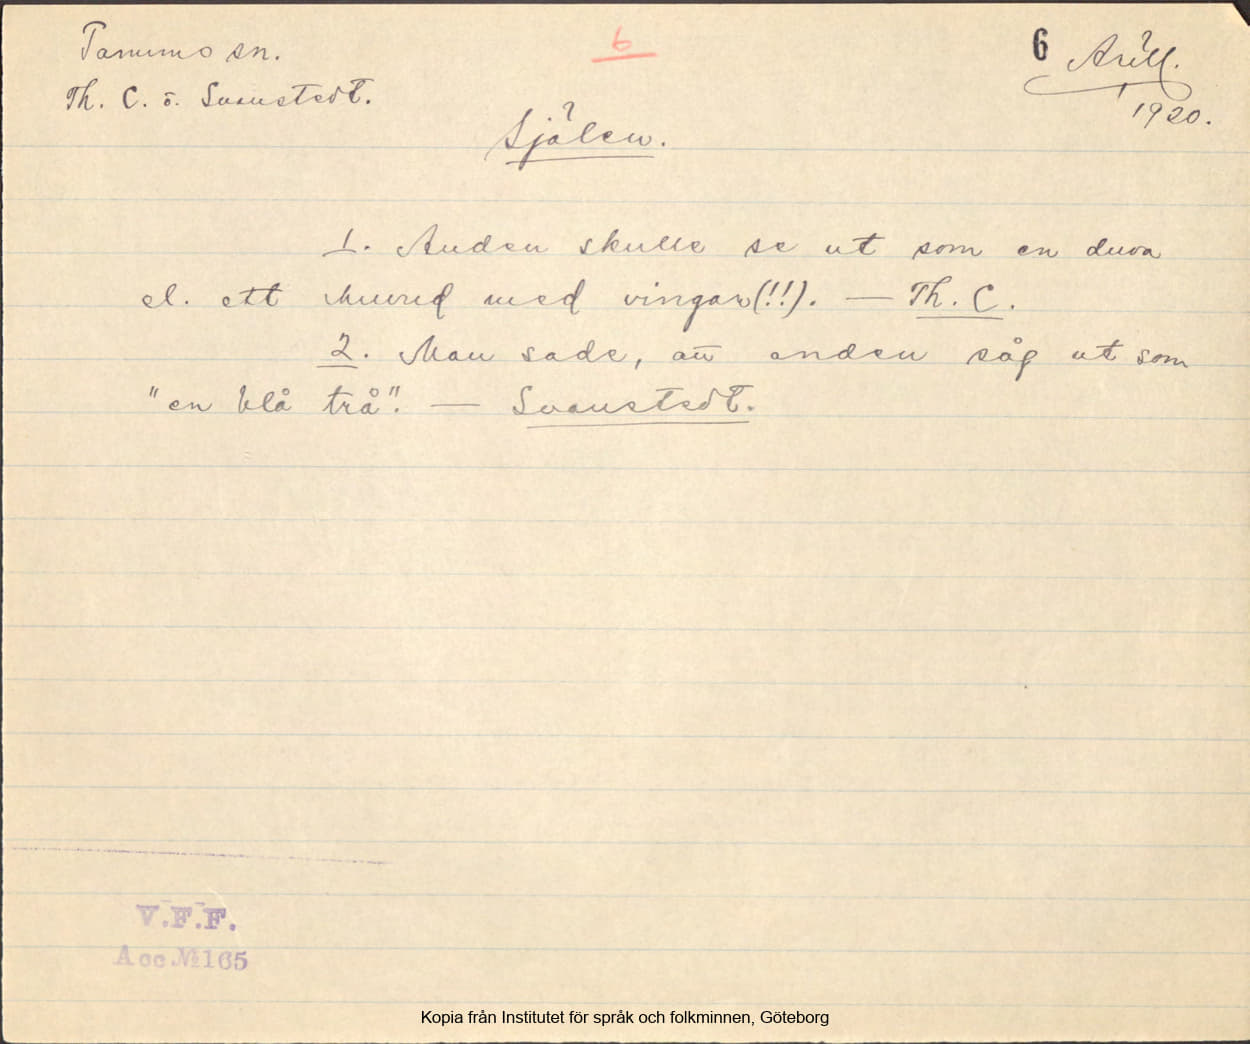 Tanumo sn.
Th. C. o. Svanstedt.
6
6 Arill.
1920.
Själen.
1. Anden skulle se ut som en duva
el. ett huvud med vingar(!!). — Th. C.
2. Man sade, att anden såg ut som
"en blå trå". — Svanstedt.
V.F.F.
Acc.№165
Kopia från Institutet för språk och folkminnen, Göteborg